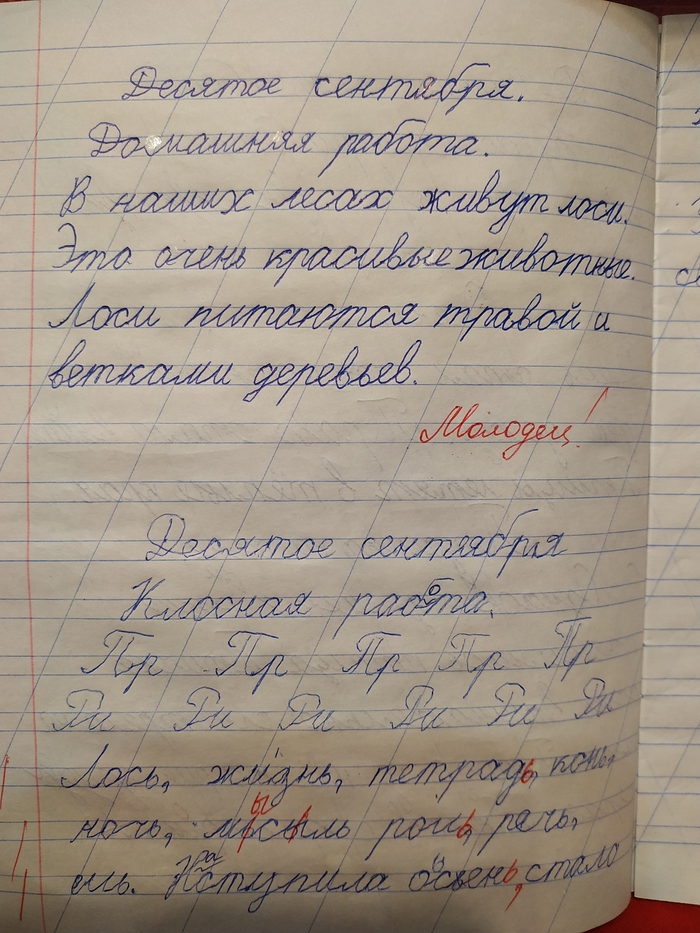 Десятое сентября.
Домашняя работа.
В наших лесах живут лоси.
Это очень красивые животные.
Лоси питаются травой и
ветками деревьев.
Молодец!
Десятое сентября
Клосная работа.
Пр Пр Пр Пр Пр
Ви Ви Ви Ви Ви Ви
Лось, жизнь, тетрадь, конь,
ночь, мысль рошь, речь,
ель. Наступила осень, стало